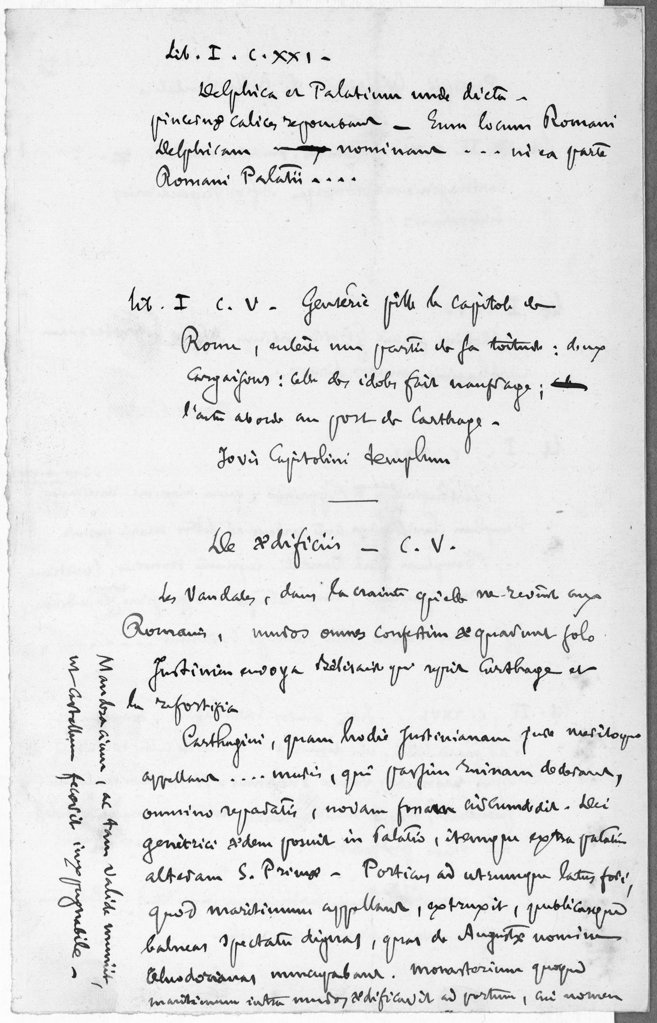 Lib. I. C. XXI -
Delphica et Palatium unde dicta -
pincernæ calices reponebant — Eum locum Romani
Delphicam nominant ... in ea parte
Romani Palatii ....
Lib. I C. V - Genséric pille le Capitole de
Rome, enlève une partie de sa toiture : deux
Cargaisons : celle des idoles fait naufrage ;
l'autre aborde au port de Carthage -
Jovis Capitolini templum
De ædificiis — C. V.
Les Vandales, dans la crainte qu'elle ne revînt aux
Romains, muros omnes confestim æquarunt solo
Justinien envoya Bélisaire qui reprit Carthage et
la refortifia
Carthagini, quam hodie Justinianam jure meritoque
appellant .... muris, qui passim ruinam dederant,
omnino reparatis, novam fossam circumdedit. Dei
genitrici ædem posuit in Palatio, itemque extra palatium
alteram S. Primæ - Porticus ad utrumque latus fori,
quod maritimum appellant, extruxit, publicasque
balneas spectatu dignas, quas de Augustæ nomine
Theodorianas nuncupabant. Monasterium quoque
maritimum intra muros ædificavit ad portum, cui nomen
Mandracium, ac tam valide muniit,
ut castellum fecerit inexpugnabile -